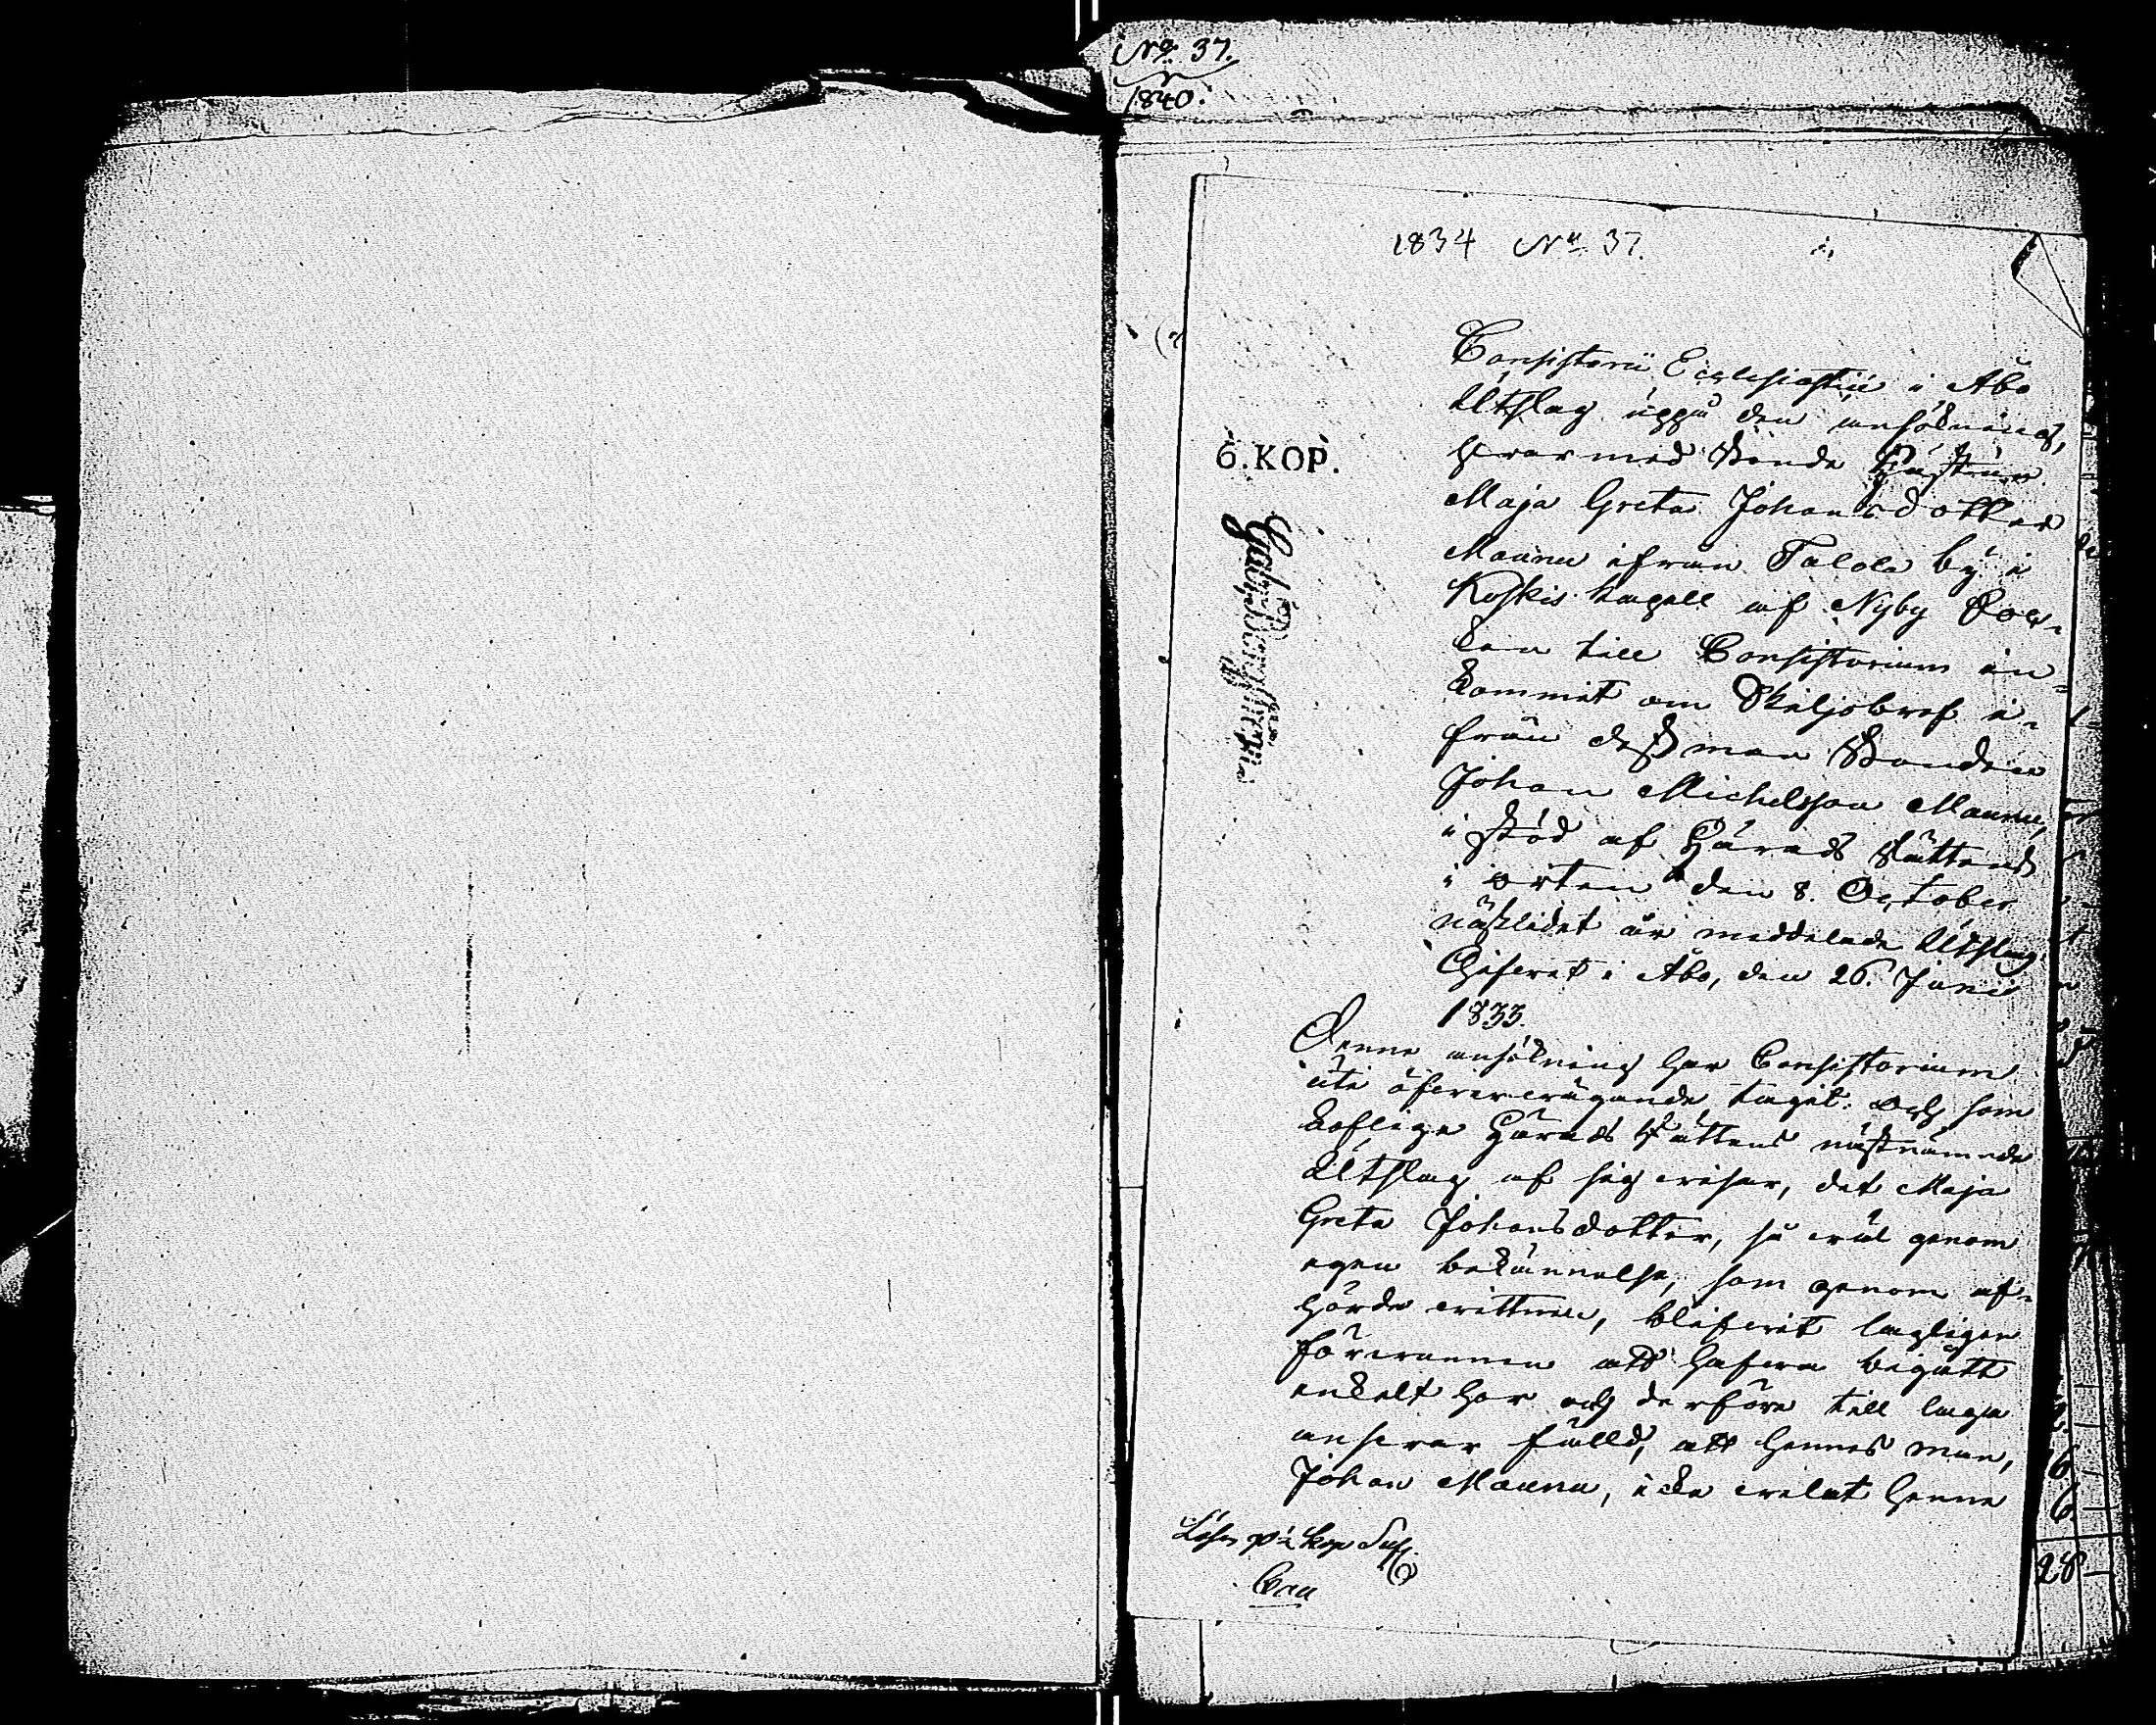 No 37.
1840.
1834 No 37.
6. KOP.
Consistorii Ecclesiastici i Åbo
Utslag uppå den ansökning,
hvarmed Bonde Hustrun
Maja Greta Johansdotter
Maunu ifrån Talola by i
Koskis Capell af Nyby Soc-
ken till Consistorium in-
kommit om Skiljobref i-
från dess man Bonden
Johan Michelsson Maunu,
i stöd af Härads Rättens
i orten den 8. October
nästlidet år meddelade Utslag.
Gifvet i Åbo, den 26. Junii
1833.
Denne ansökning har Consistorium
uti öfvervägande tagit: och som
Loflige Härads Rättens nästnämnde
Utslag af sig visar, det Maja
Greta Johansdotter, så väl genom
egen bekännelse, som genom af-
hörde vittnen, blifvit lagligen
förvunnen att hafva begått
enkelt hor och derföre till laga
ansvar fälld, att hennes man,
Johan Maunu, icke velat henne
Lösen kop Silf.
6.
16
6
28